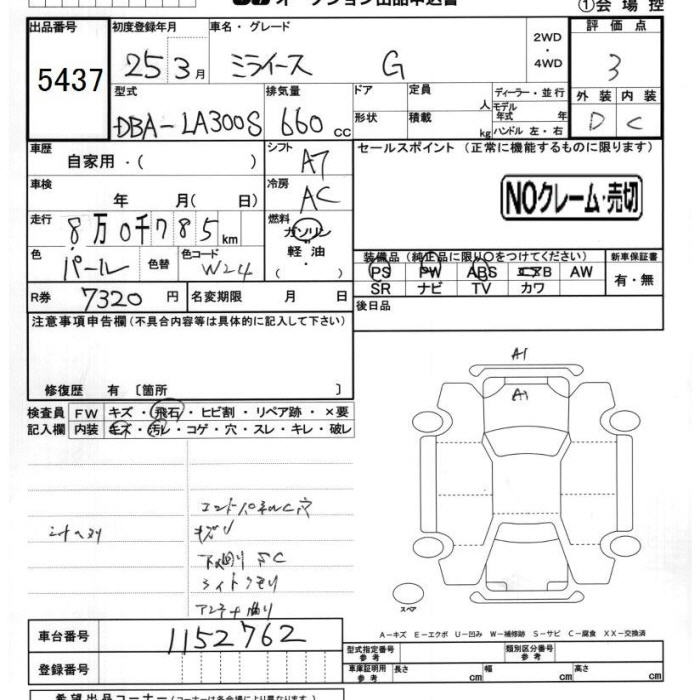 オークション出品申込書
①会場控
出品番号 初度登録年月 車名・グレード 2WD ・ 4WD 評価点
5437 25 3月 ミライース G 3
型式 排気量 ドア 定員 人 ディーラー・並行 外装 内装
DBA-LA300S 660 cc 形状 積載 kg モデル年式 年 ハンドル 左・右 D C
車歴 自家用・( ) シフト AT セールスポイント (正常に機能するものに限ります)
車検 年 月( 日) 冷房 AC NOクレーム・売切
走行 8万0千785km 燃料 ガソリン 軽油 ( )
色 パール 色替 色コード W24 装備品 (純正品に限り○をつけてください) 新車保証書
PS PW ABS エアB AW 有・無
SR ナビ TV カワ
R券 7320円 名変期限 月 日 後日品
注意事項申告欄 (不具合内容等は具体的に記入して下さい)
修復歴 有 〔箇所 〕
検査員 FW キズ・飛石・ヒビ割・リペア跡・×要
記入欄 内装 キズ・汚レ・コゲ・穴・スレ・キレ・破レ
A1
A1
エンドパネルC穴
キズU
下廻りSC
ライトクモリ
アンテナ曲り
スペア
A－キズ E－エクボ U－凹み W－補修跡 S－サビ C－腐食 XX－交換済
車台番号 1152762
型式指定番号 参考 類別区分番号 参考
登録番号 車庫証明用 参考 長さ cm 幅 cm 高さ cm
希望出品コーナー